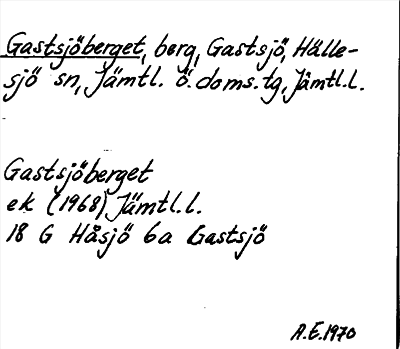 Gastsjöberget, berg, Gastsjö, Hälle-
sjö sn, Jämtl. ö. doms. tg, Jämtl. l.
Gastsjöberget
ek (1968) Jämtl. l.
18 G Håsjö 6a Gastsjö
A.E. 1970